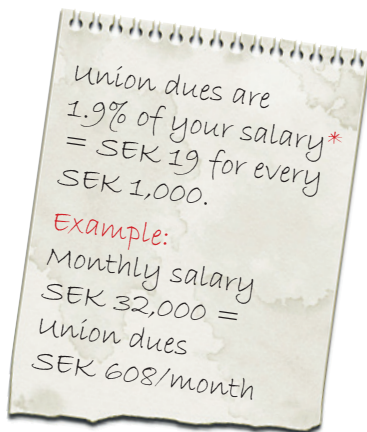 Union dues are
1.9% of your salary*
= SEK 19 for every
SEK 1,000.
Example:
Monthly salary
SEK 32,000 =
Union dues
SEK 608/month